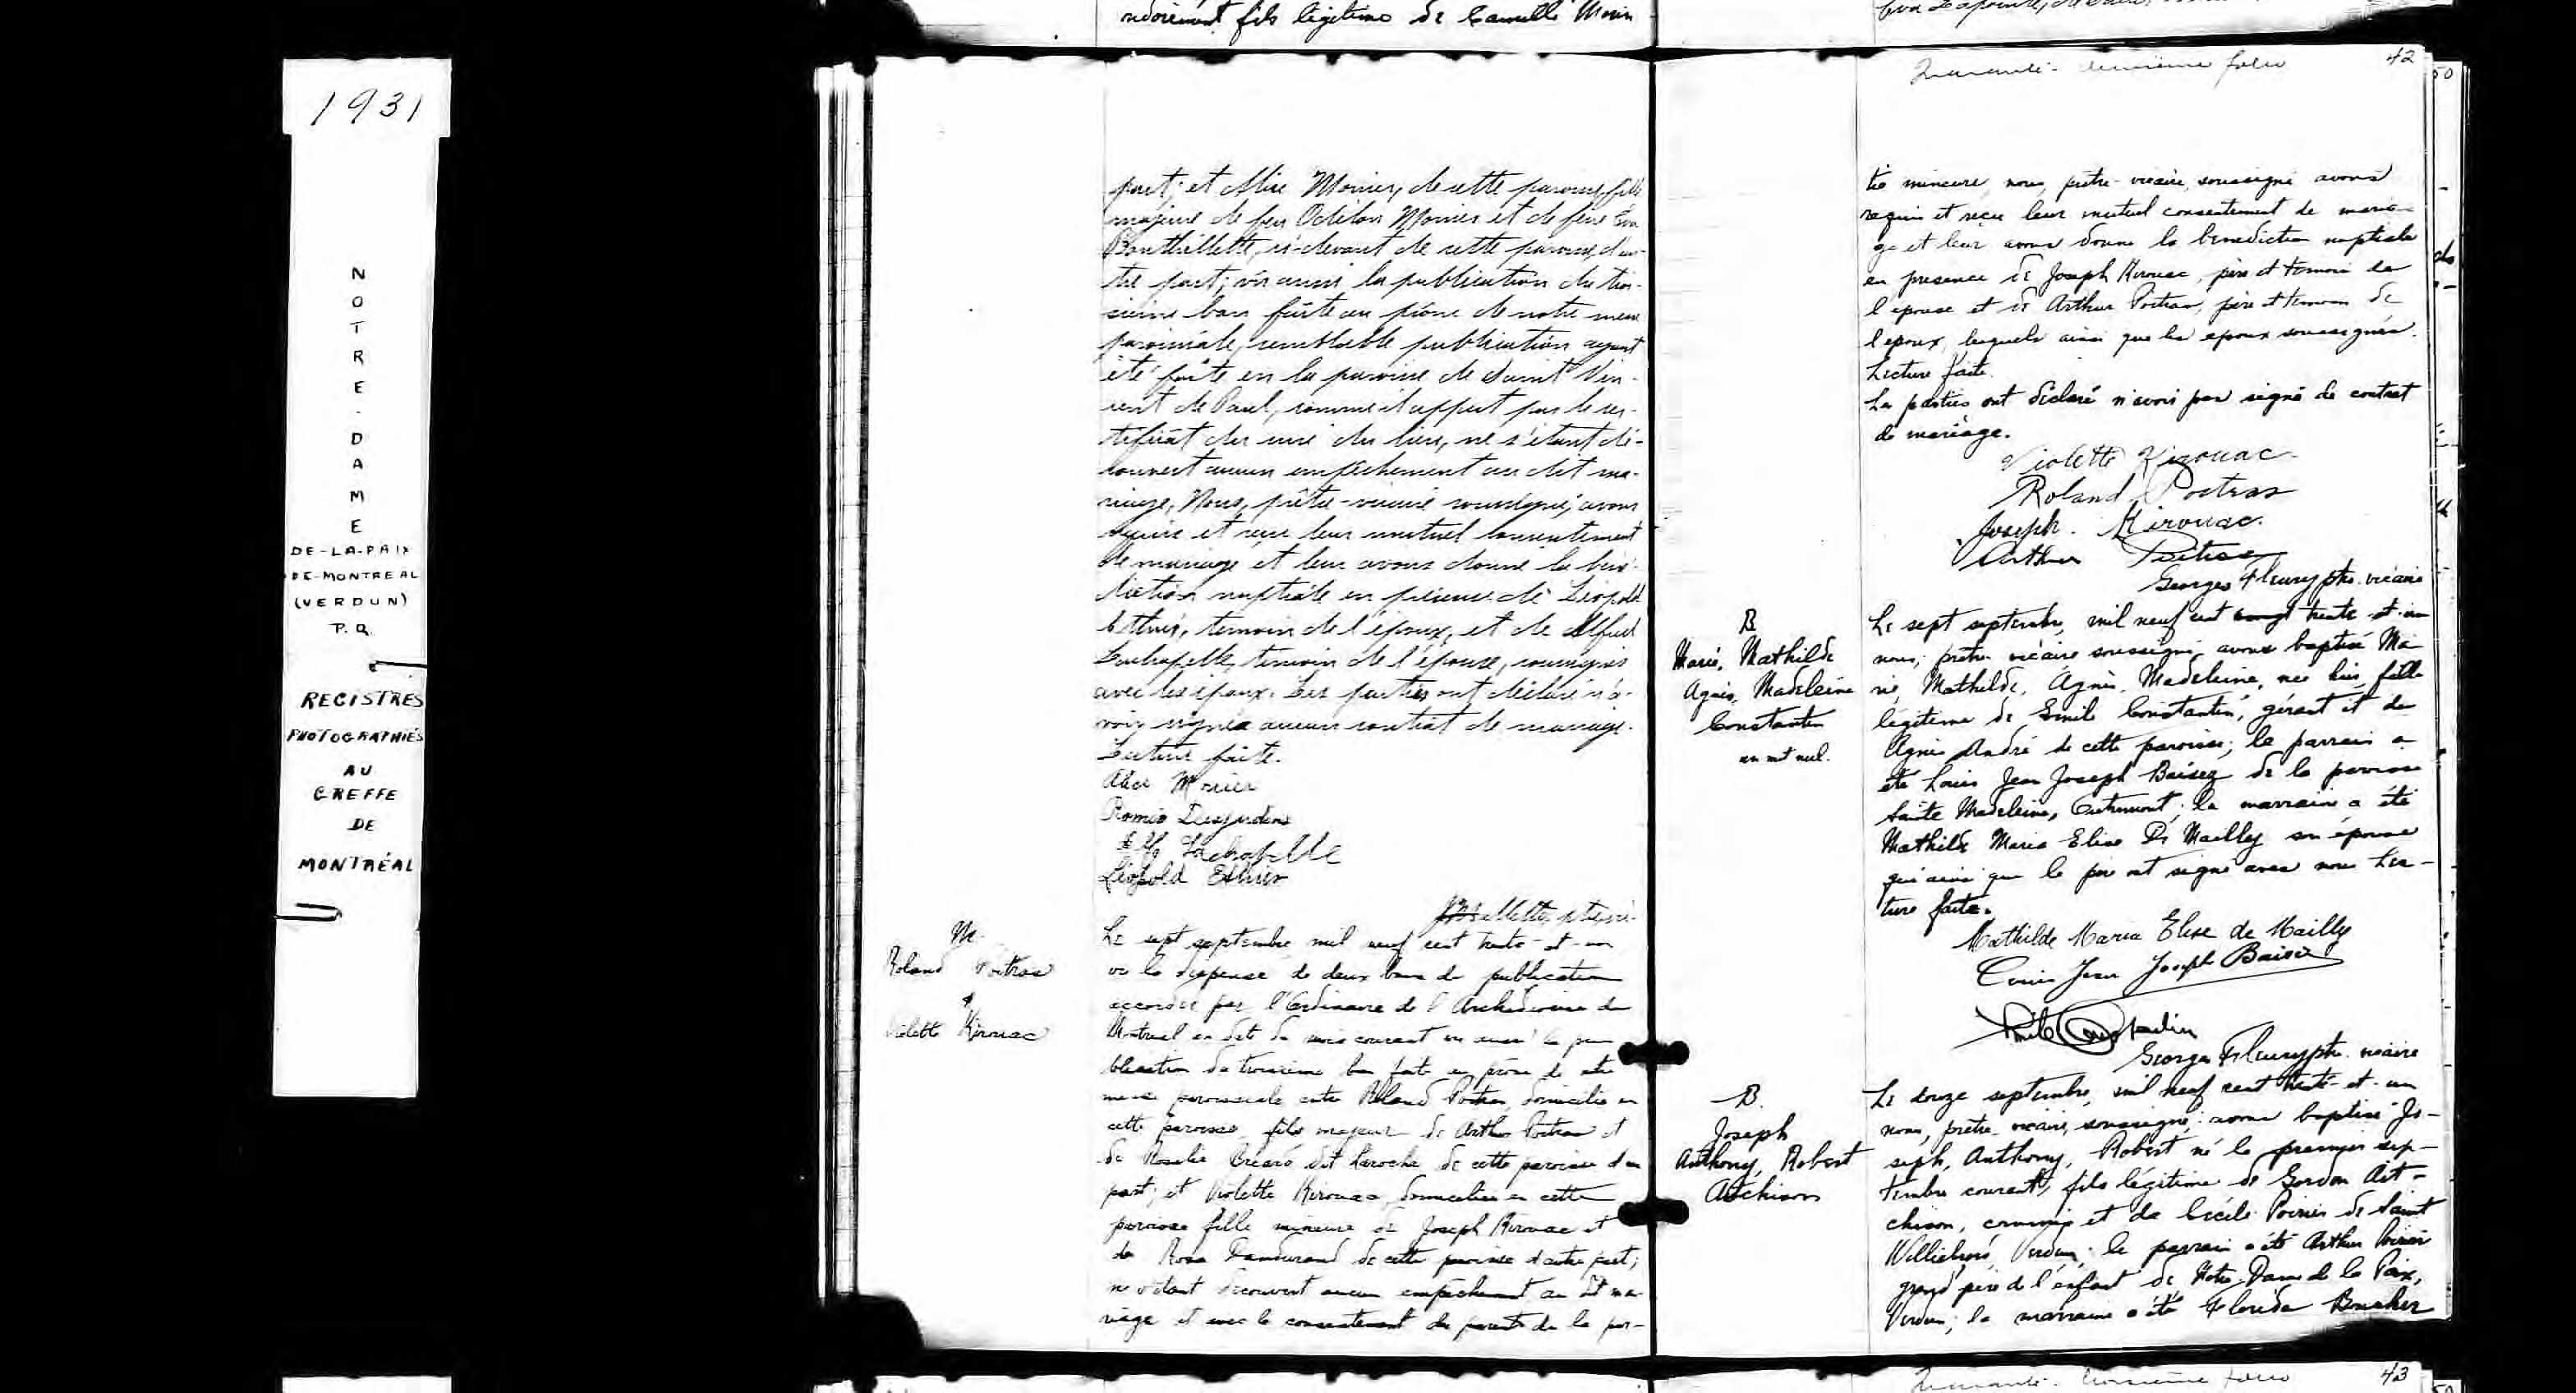 1931
NOTRE-DAME
DE-LA-PAIX
DE-MONTREAL
(VERDUN)
P.Q.
REGISTRES
PHOTOGRAPHIÉS
AU
GREFFE
DE
MONTRÉAL
fils légitime de Camille Morin
part; et Alice Monier, de cette paroisse, fille
majeure de feu Odilon Monier et de feue Eva
Bouthillette, ci-devant de cette paroisse, d'au-
tre part; vu aussi la publication du troi-
sième ban faite au prône de notre messe
paroissiale, semblable publication ayant
été faite en la paroisse de Saint Vin-
cent de Paul, comme il appert par le cer-
tificat du curé du lieu, ne s'étant dé-
couvert aucun empêchement au dit ma-
riage, Nous, prêtre-vicaire soussigné, avons
requis et reçu leur mutuel consentement
de mariage et leur avons donné la béné-
diction nuptiale en présence de Léopold
Ethier, témoin de l'époux, et de Alfred
Lachapelle, témoin de l'épouse, soussignés
avec les époux. Les parties ont déclaré n'a-
voir signé aucun contrat de mariage.
Lecture faite.
Alice Monier
Roméo Desjardins
Alf Lachapelle
Léopold Ethier
M.
Roland Poitras
&
Violette Kirouac
Le sept septembre, mil neuf cent trente-et-un
vu la dispense de deux bans de publication
accordée par l'Ordinaire de l'Archidiocèse de
Montréal en date du mois courant vu aussi la pu
blication du troisième ban faite au prône de notre
messe paroissiale entre Roland Poitras, domicilié en
cette paroisse, fils majeur de Arthur Poitras et
de Rosalie dit Laroche de cette paroisse d'une
part; et Violette Kirouac, domiciliée en cette
paroisse fille mineure de Joseph Kirouac et
de Rosa Dandurand de cette paroisse d'autre part;
ne s'étant découvert aucun empêchement au dit ma-
riage et avec le consentement des parents de la par-
42
Quarante-deuxième folio
tie mineure, nous, prêtre-vicaire, soussigné avons
requis et reçu leur mutuel consentement de maria-
ge et leur avons donné la bénédiction nuptiale
en présence de Joseph Kirouac, père et témoin de
l'épouse et de Arthur Poitras, père et témoin de
l'époux, lesquels ainsi que les époux soussignés.
Lecture faite.
Les parties ont déclaré n'avoir pas signé de contrat
de mariage.
Violette Kirouac
Roland Poitras
Joseph. Kirouac.
Arthur Poitras
Georges Fleury ptre. vicaire
B
Marie, Mathilde
Agnès, Madeleine
Constantin
un mot nul.
Le sept septembre, mil neuf cent vingt trente-et-un
nous, prêtre-vicaire soussigné, avons baptisé Ma-
rie, Mathilde, Agnès, Madeleine, née hier, fille
légitime de Emile Constantin, gérant et de
Agnès André de cette paroisse; le parrain a
été Louis Jean Joseph Baisez de la paroisse
Sainte Madeleine, Outremont; la marraine a été
Mathilde Maria Elise De Mailly son épouse
qui ainsi que le père ont signé avec nous Lec-
ture faite.
Mathilde Maria Elise de Mailly
Louis Jean Joseph Baisez
Emile Constantin
Georges Fleury ptre. vicaire
B.
Joseph
Anthony, Robert
Aitchison
Le douze septembre, mil neuf cent trente-et-un
nous, prêtre-vicaire, soussigné, avons baptisé Jo-
seph, Anthony, Robert né le premier sep-
tembre courant, fils légitime de Gordon Ait-
chison, commis et de Cécile Poirier de Saint
Willibrord, Verdun; le parrain a été Arthur Poirier
grand père de l'enfant de Notre-Dame de la Paix,
Verdun; la marraine a été Florida Boucher
43
Quarante-troisième folio